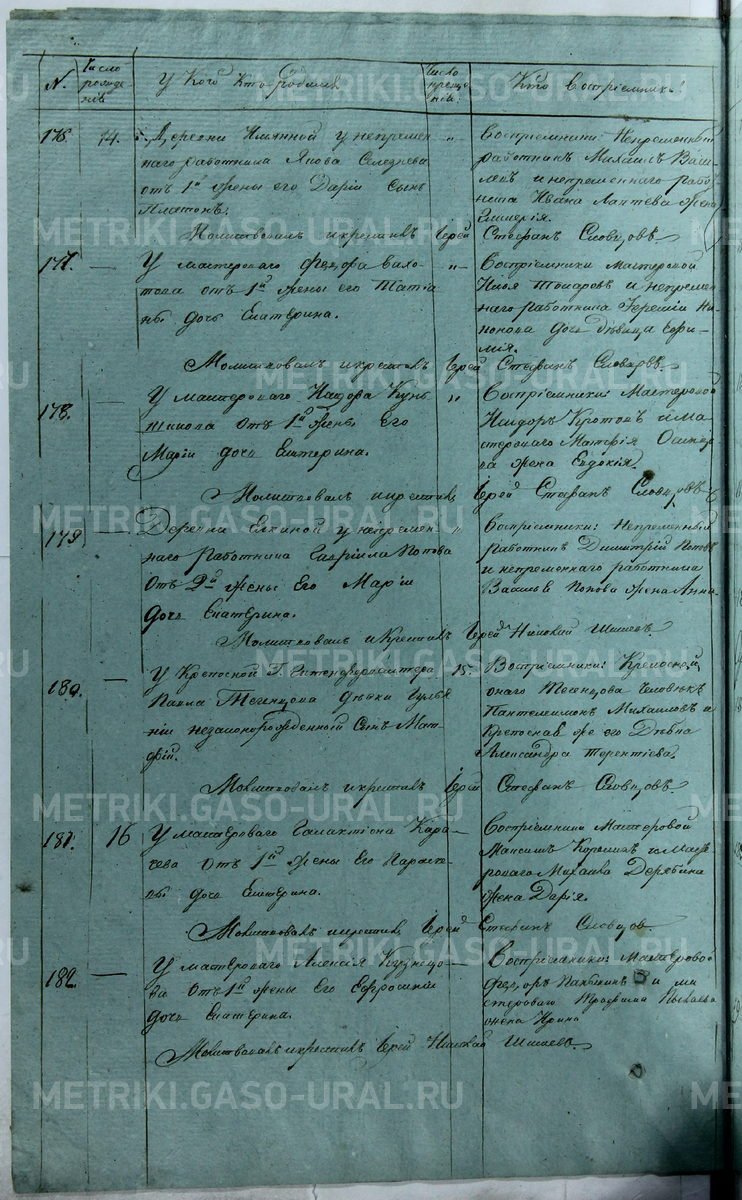 N.
Число рожде-
нія
У кого кто родился
Число креще-
нія:
Кто воспріемники:
176.
14.
Деревни у непремен-
наго работника Якова Селезнева
отъ 1й жены его Даріи сынъ
Платонъ.
„
Воспріемники: Непременный
работникъ Михаилъ Васи-
льевъ и непременнаго рабо-
тника Ивана Лаптева жена
Молитвовалъ и крестилъ Іерей Стефанъ Словцовъ.
177.
—
У мастероваго Федора
отъ 1й жены его Татія-
ны дочь Екатерина.
„
Воспріемники мастеровой
Илья Токаревъ и непремен-
наго работника Еремія
дочь девица Ефи-
мія.
Молитвовалъ и крестилъ Іерей Стефанъ Словцовъ.
178.
—
У мастероваго
отъ 1й жены Его
Маріи дочь Екатерина.
„
Воспріемники: Мастеровой
Исидоръ Кротовъ и Ма-
стероваго
жена Евдокія.
Молитвовалъ и крестилъ Іерей Стефанъ Словцовъ
179.
—
Деревни Елкиной у непремен-
наго работника Гавріила Попова
Отъ 2й жены Его Маріи
дочь Екатерина.
„
Воспріемники: Непременный
работникъ Димитрій Поповъ
и непременнаго работника
Василья Попова жена Анна
Молитвовалъ и Крестилъ Іерей Николай Шишевъ.
180.
—
У Крепосной Г.
Павла Тегенцова девки
незаконорожденный сынъ Мат-
фій.
15.
Воспріемники: Крепосной
онаго Тегенцова человекъ
Пантелеимонъ Михаиловъ и
Крепосная же его Девка
Александра Терентіева.
Молитвовалъ и крестилъ Іерей Стефанъ Словцовъ
181.
16
У мастероваго Галактіона Кара-
чева отъ 1й жены Его Параске-
вы дочь Екатерина.
—
Воспріемники Мастеровой
Максимъ и Масте-
роваго Михаила Дерябина
жена Дарія.
Молитвовалъ и крестилъ Іерей Стефанъ Словцов.
182.
—
У мастероваго Алексія Кузнецо-
ва Отъ 1й жены Его Ефросиніи
дочь Екатерина.
—
Воспріемники: Мастеровой
Федоръ и ма-
стероваго
жена Ирина
Молитвовалъ и крестилъ Іерей Николай Шишевъ.
METRIKI.GASO-URAL.RU